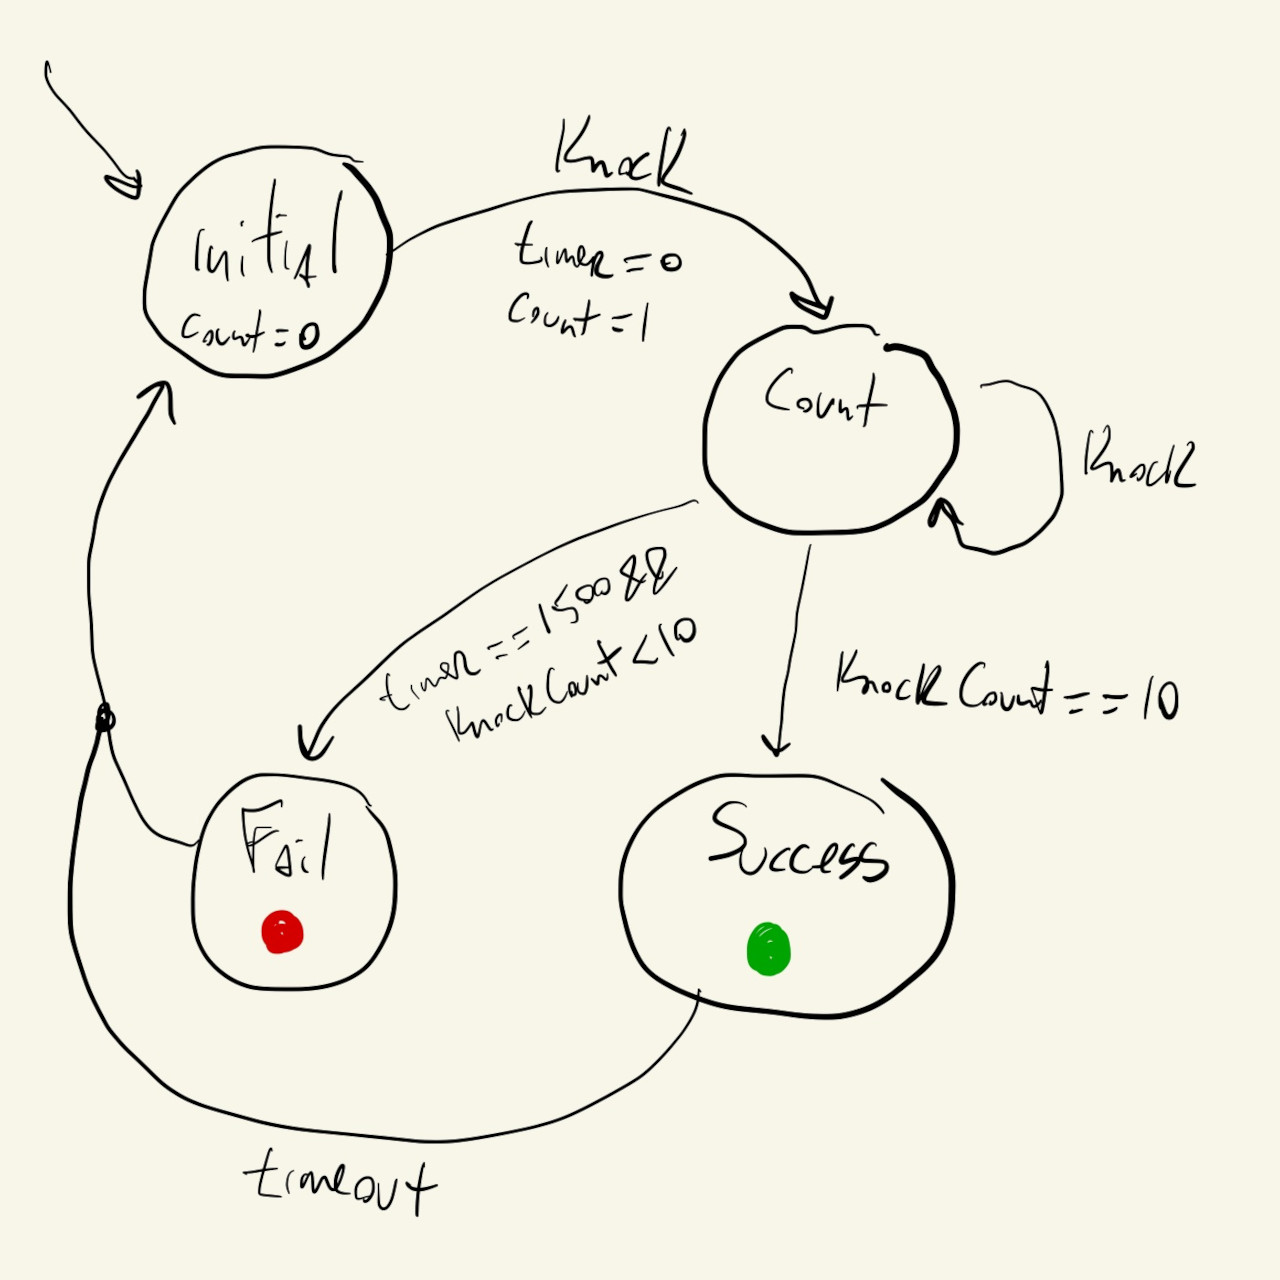 Knock
Initial
count=0
timer=0
Count=1
Count
Knock
timer==1500&&
KnockCount<10
KnockCount==10
Fail
Success
timeout